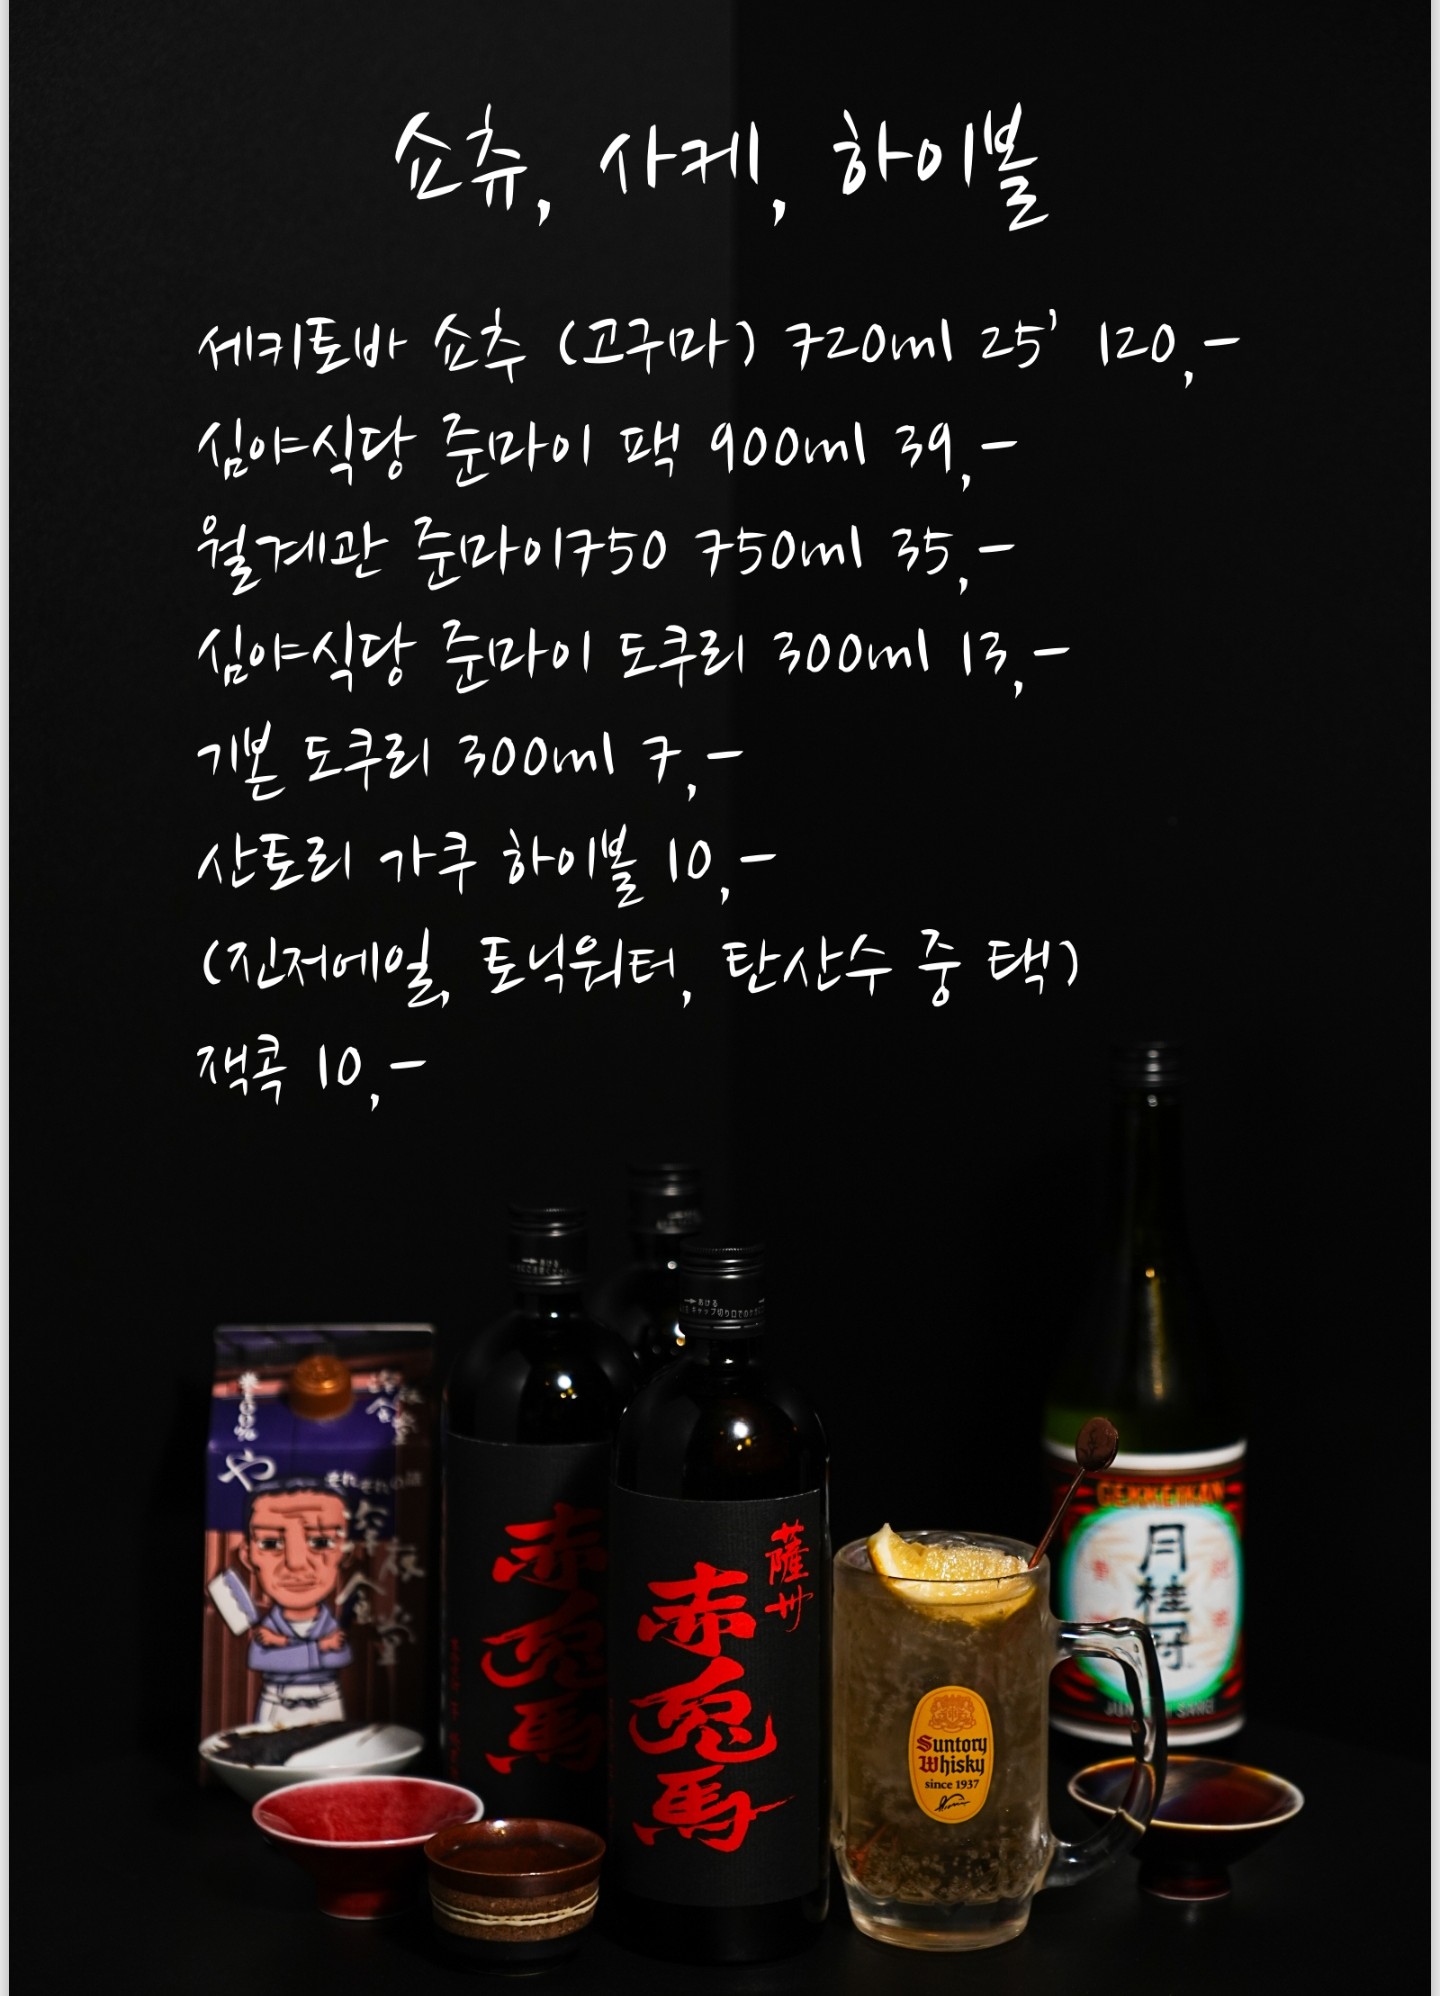 쇼츄, 사케, 하이볼
세키토바 쇼츄 (고구마) 720ml 25' 120,-
심야식당 준마이 팩 900ml 39,-
월계관 준마이750 750ml 35,-
심야식당 준마이 도쿠리 300ml 13,-
기본 도쿠리 300ml 7,-
산토리 가쿠 하이볼 10,-
(진저에일, 토닉워터, 탄산수 중 택)
잭콕 10,-
や
赤兎馬
薩州
赤兎馬
GEKKEIKAN
月桂冠
Suntory
Whisky
since 1937